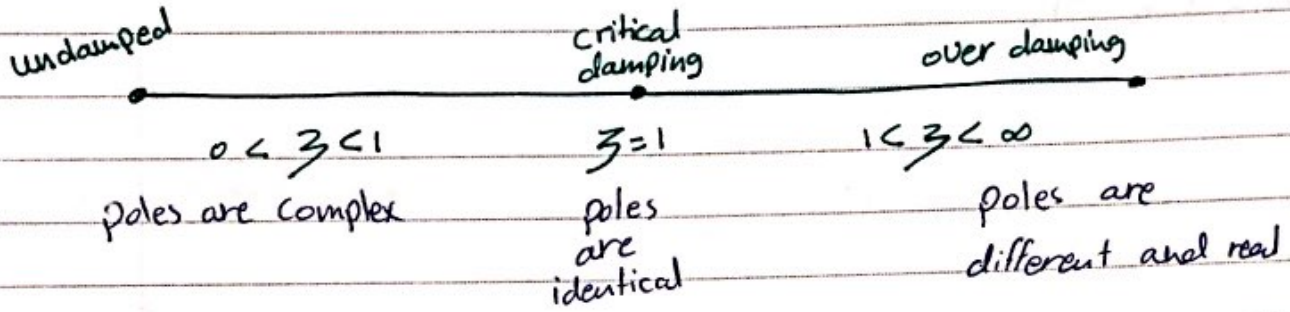 undamped
critical
damping
over damping
0 < ζ < 1
ζ = 1
1 < ζ < ∞
poles are complex
poles
are
identical
poles are
different and real